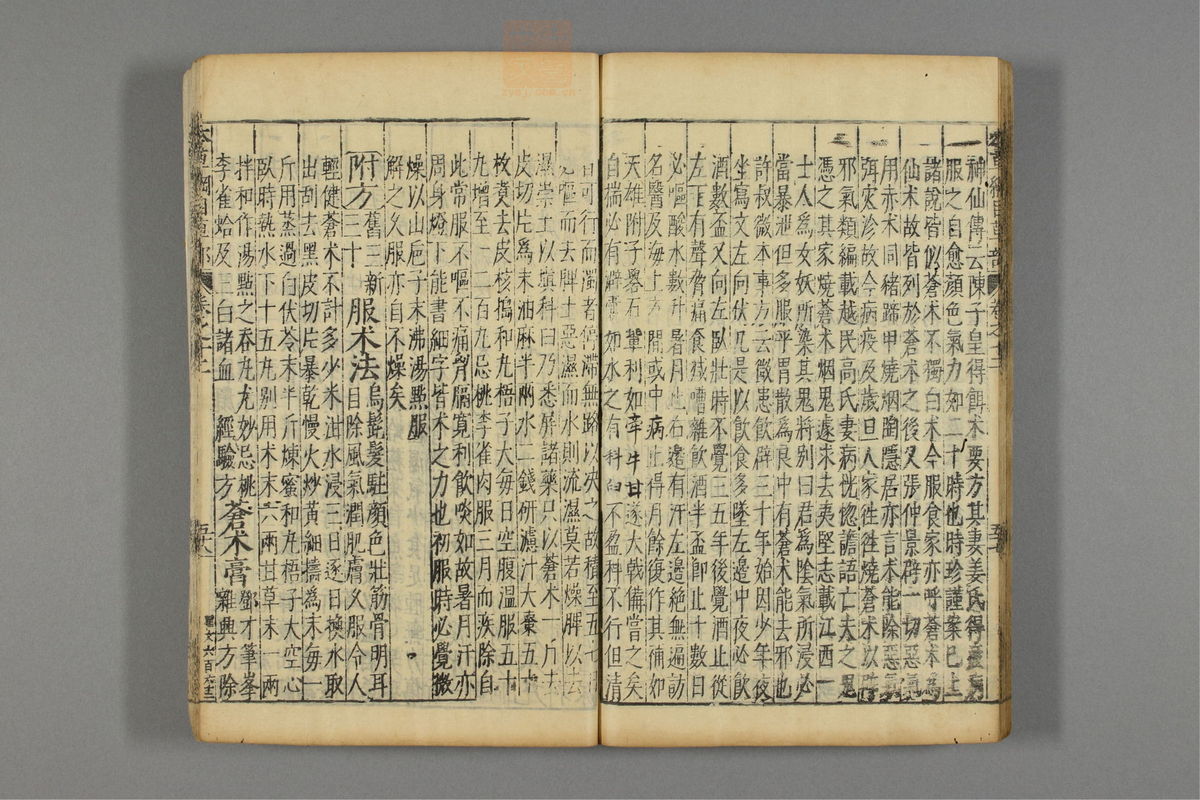 神仙傳云陳子皇得餌朮要方其妻姜氏得疲病
服之自愈顏色氣力如二十時也時珍謹案已上
諸說皆似蒼朮不獨白朮今服食家亦呼蒼朮為
仙朮故皆列於蒼朮之後又張仲景辟一切惡氣
用赤朮同猪蹄甲燒烟陶隱居亦言朮能除惡氣
弭灾沴故今病疫及歲旦人家往往燒蒼朮以辟
邪氣類編載越民高氏妻病恍惚譫語亡夫之鬼
憑之其家燒蒼朮烟鬼遽求去夷堅志載江西一
士人為女妖所染其鬼將別曰君為陰氣所浸必
當暴泄但多服平胃散為良中有蒼朮能去邪也
許叔微本事方云微患飲癖三十年始因少年夜
坐寫文左向伏几是以飲食多墜左邊中夜必飲
酒數盃又向左臥壯時不覺三五年後覺酒止從
左下有聲脅痛食減嘈雜飲酒半盃即止十數日
必嘔酸水數升暑月止右邊有汗左邊絕無遍訪
名醫及海上方間或中病止得月餘復作其補如
天雄附子礬石輩利如牽牛甘遂大戟備嘗之矣
自揣必有癖囊如水之有科臼不盈科不行但清
者可行而濁者停滯無路以决之故積至五七日
必嘔而去脾土惡濕而水則流濕莫若燥脾以去
濕崇土以填科臼乃悉屏諸藥只以蒼朮一斤去
皮切片為末油麻半兩水二錢研濾汁大棗五十
枚煑去皮核搗和丸梧子大每日空腹溫服五十
丸增至一二百丸忌桃李雀肉服三月而疾除自
此常服不嘔不痛胷膈寬利飲啖如故暑月汗亦
周身燈下能書細字皆朮之力也初服時必覺微
燥以山巵子末沸湯點服
解之久服亦自不燥矣
附方舊三新三十服朮法烏髭髮駐顏色壯筋骨明耳
目除風氣潤肥膚久服令人
輕健蒼朮不計多少米泔水浸三日逐日換水取
出刮去黑皮切片暴乾慢火炒黃細擣為末每一
斤用蒸過白伏苓末半斤煉蜜和丸梧子大空心
臥時熱水下十五丸別用朮末六兩甘草末一兩
拌和作湯點之吞丸尤妙忌桃
李雀蛤及三白諸血 鄧才筆峯
經驗方蒼朮膏雜興方除